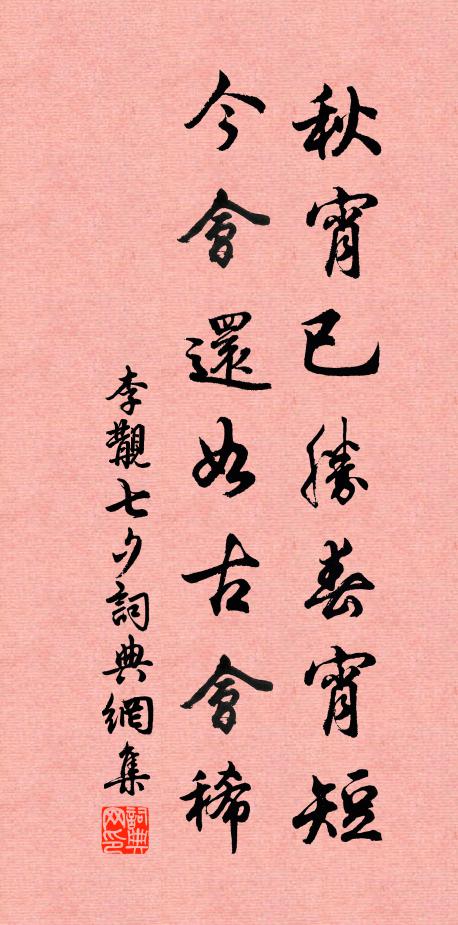 秋宵已勝春宵短
今會還如古會稀
李觏七夕詞典網集
詞典网印